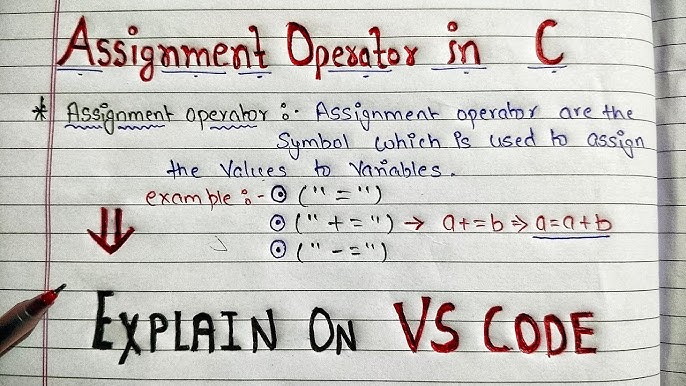 Assignment Operator in C
* Assignment operator :- Assignment operator are the
Symbol which is used to assign
the values to variables.
example :- ⊙ ("=")
⊙ ("+=") → a+=b ⇒ a=a+b
⊙ ("-=")
EXPLAIN ON VS CODE